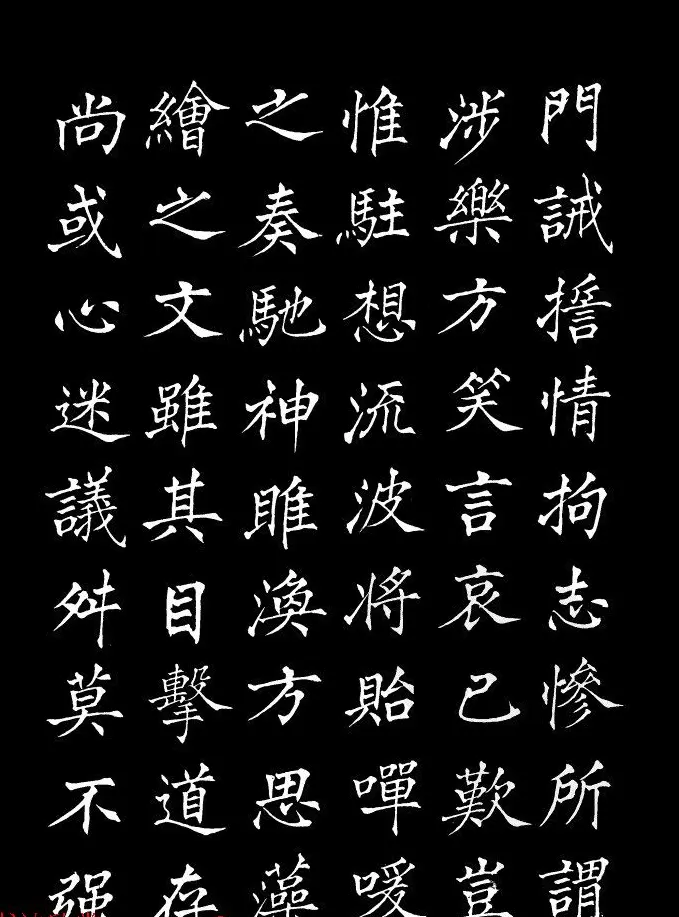 門誡誓情拘志慘所謂
涉樂方笑言哀已歎豈
惟駐想流波將貽嘽喛
之奏馳神睢渙方思藻
繪之文雖其目擊道存
尚或心迷議舛莫不强